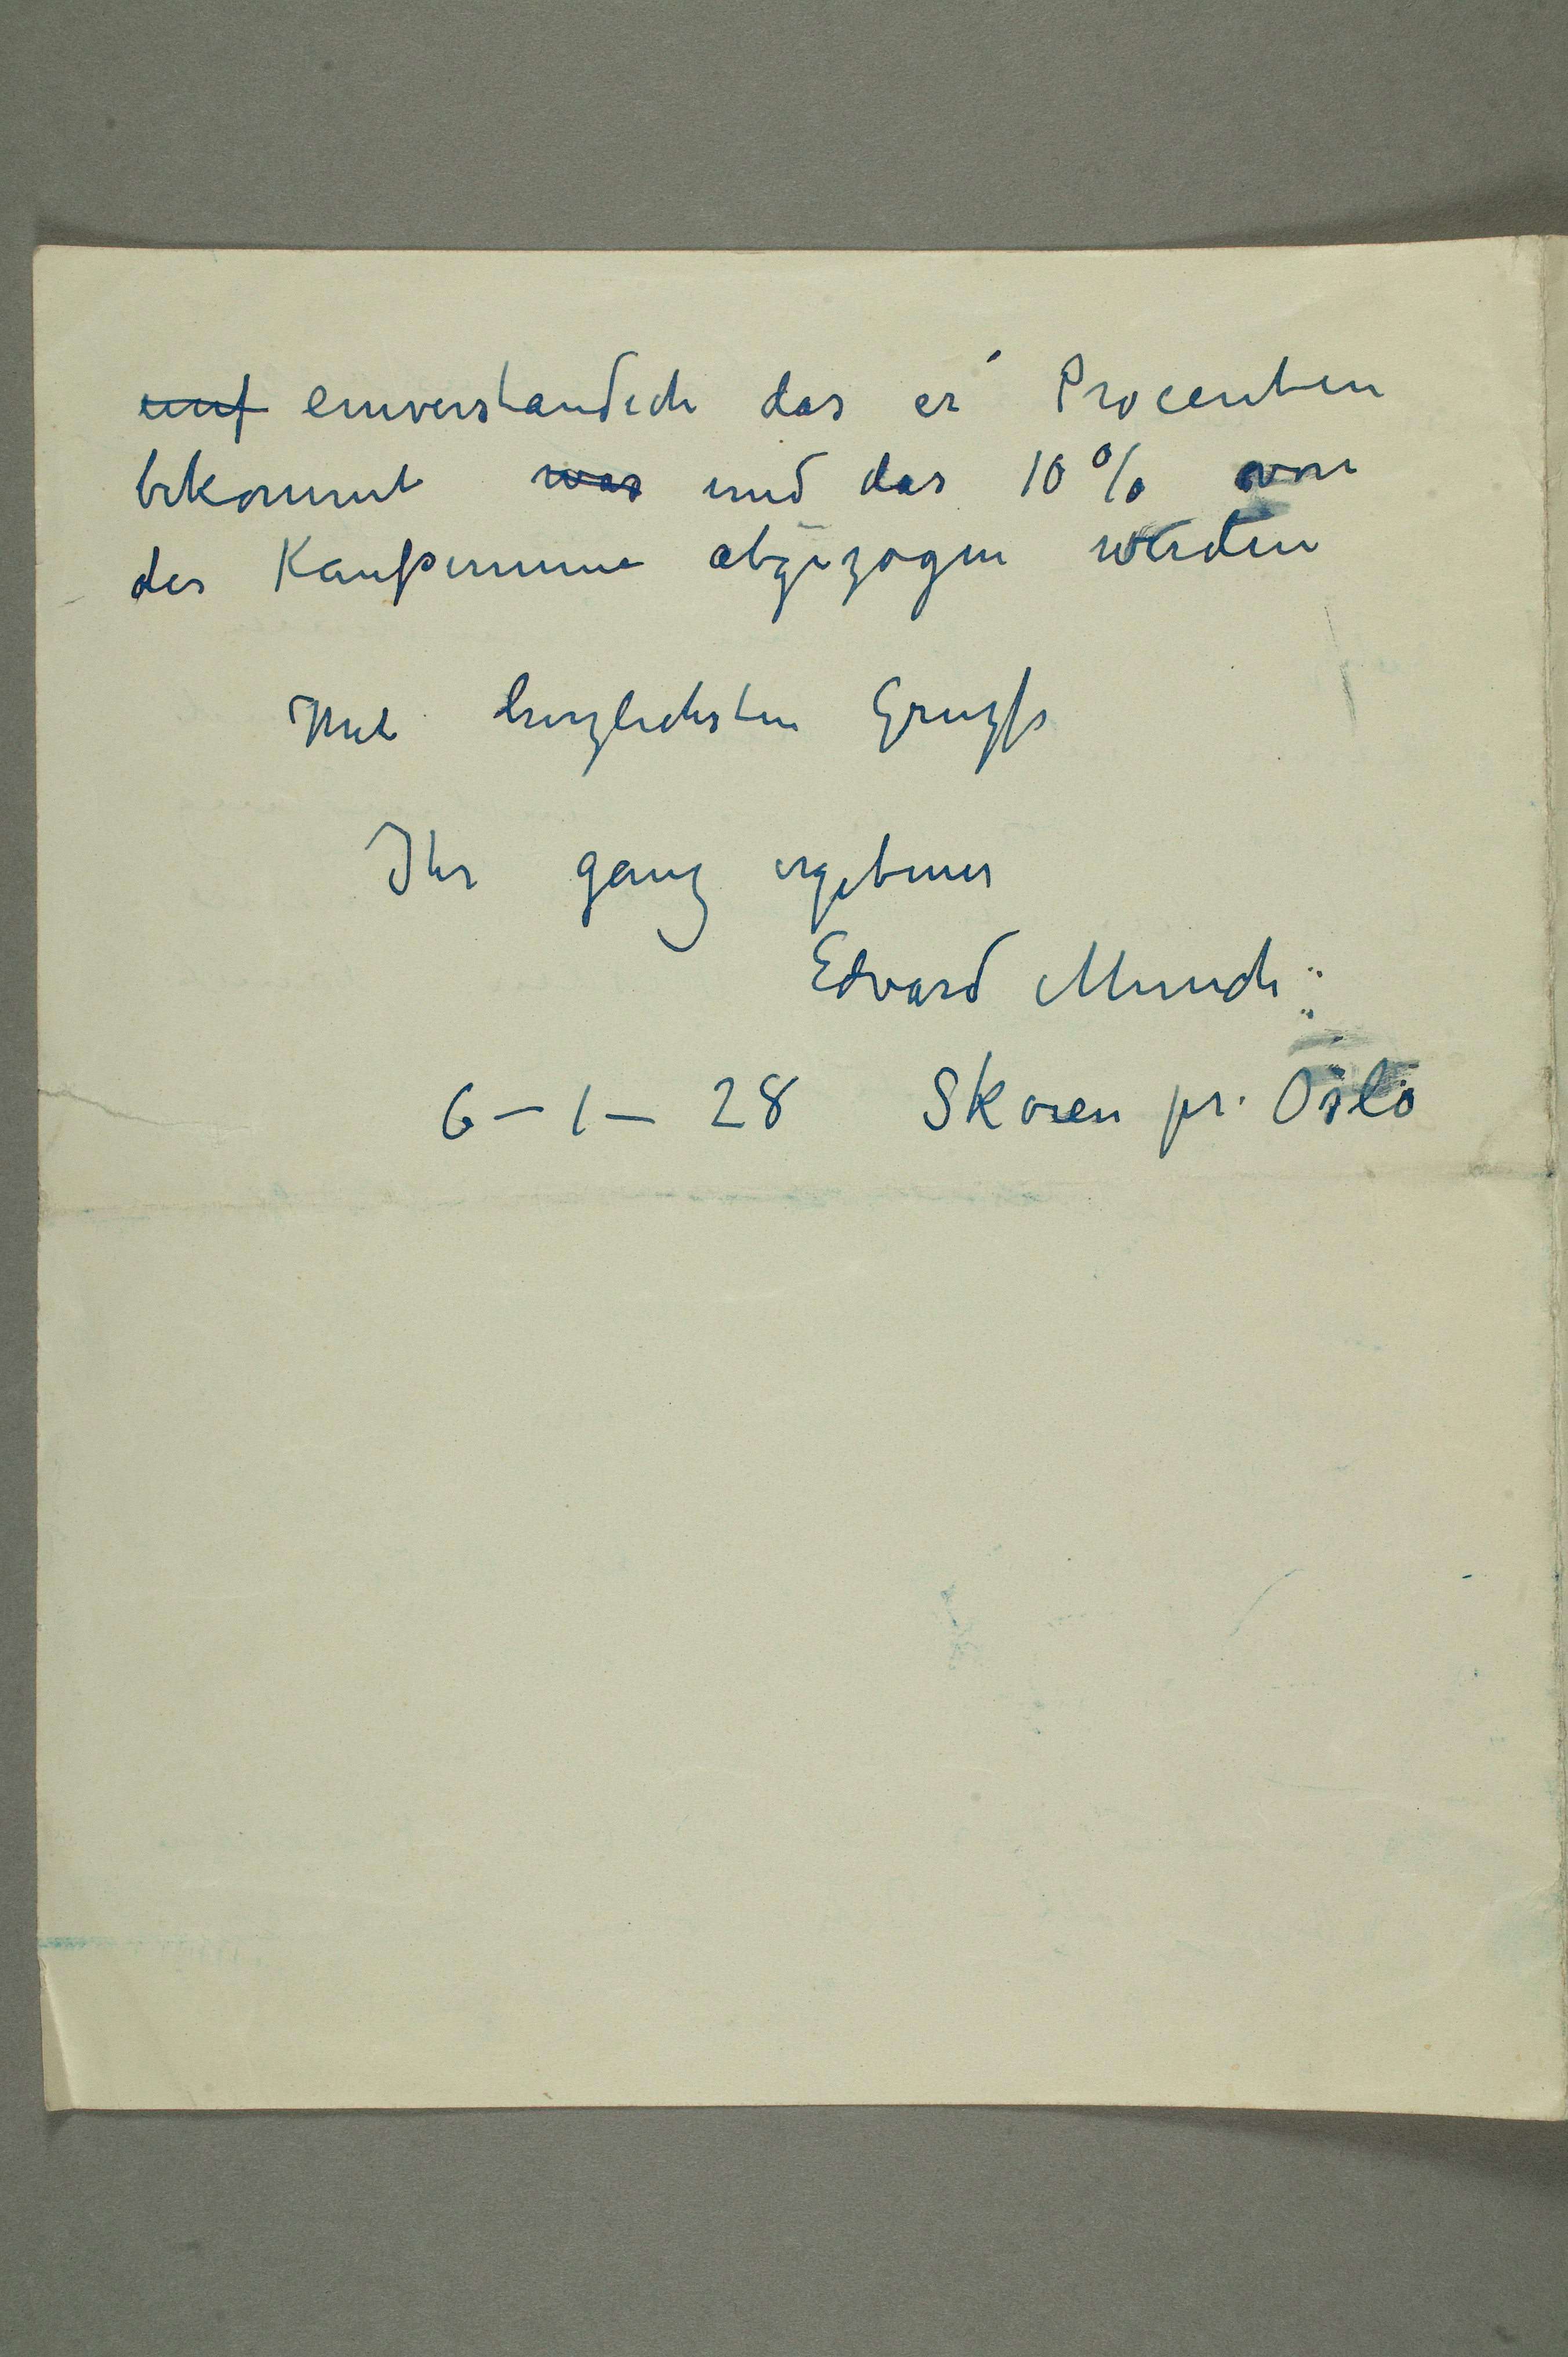 einf einverstandich das er Procenten
bekommt was und das 10% von
der Kaufsumme abgezogen werden
Mit herzlichsten Gruzfs
Ihr ganz ergebener
Edvard Munch
6–1–28 Skøien pr. Oslo